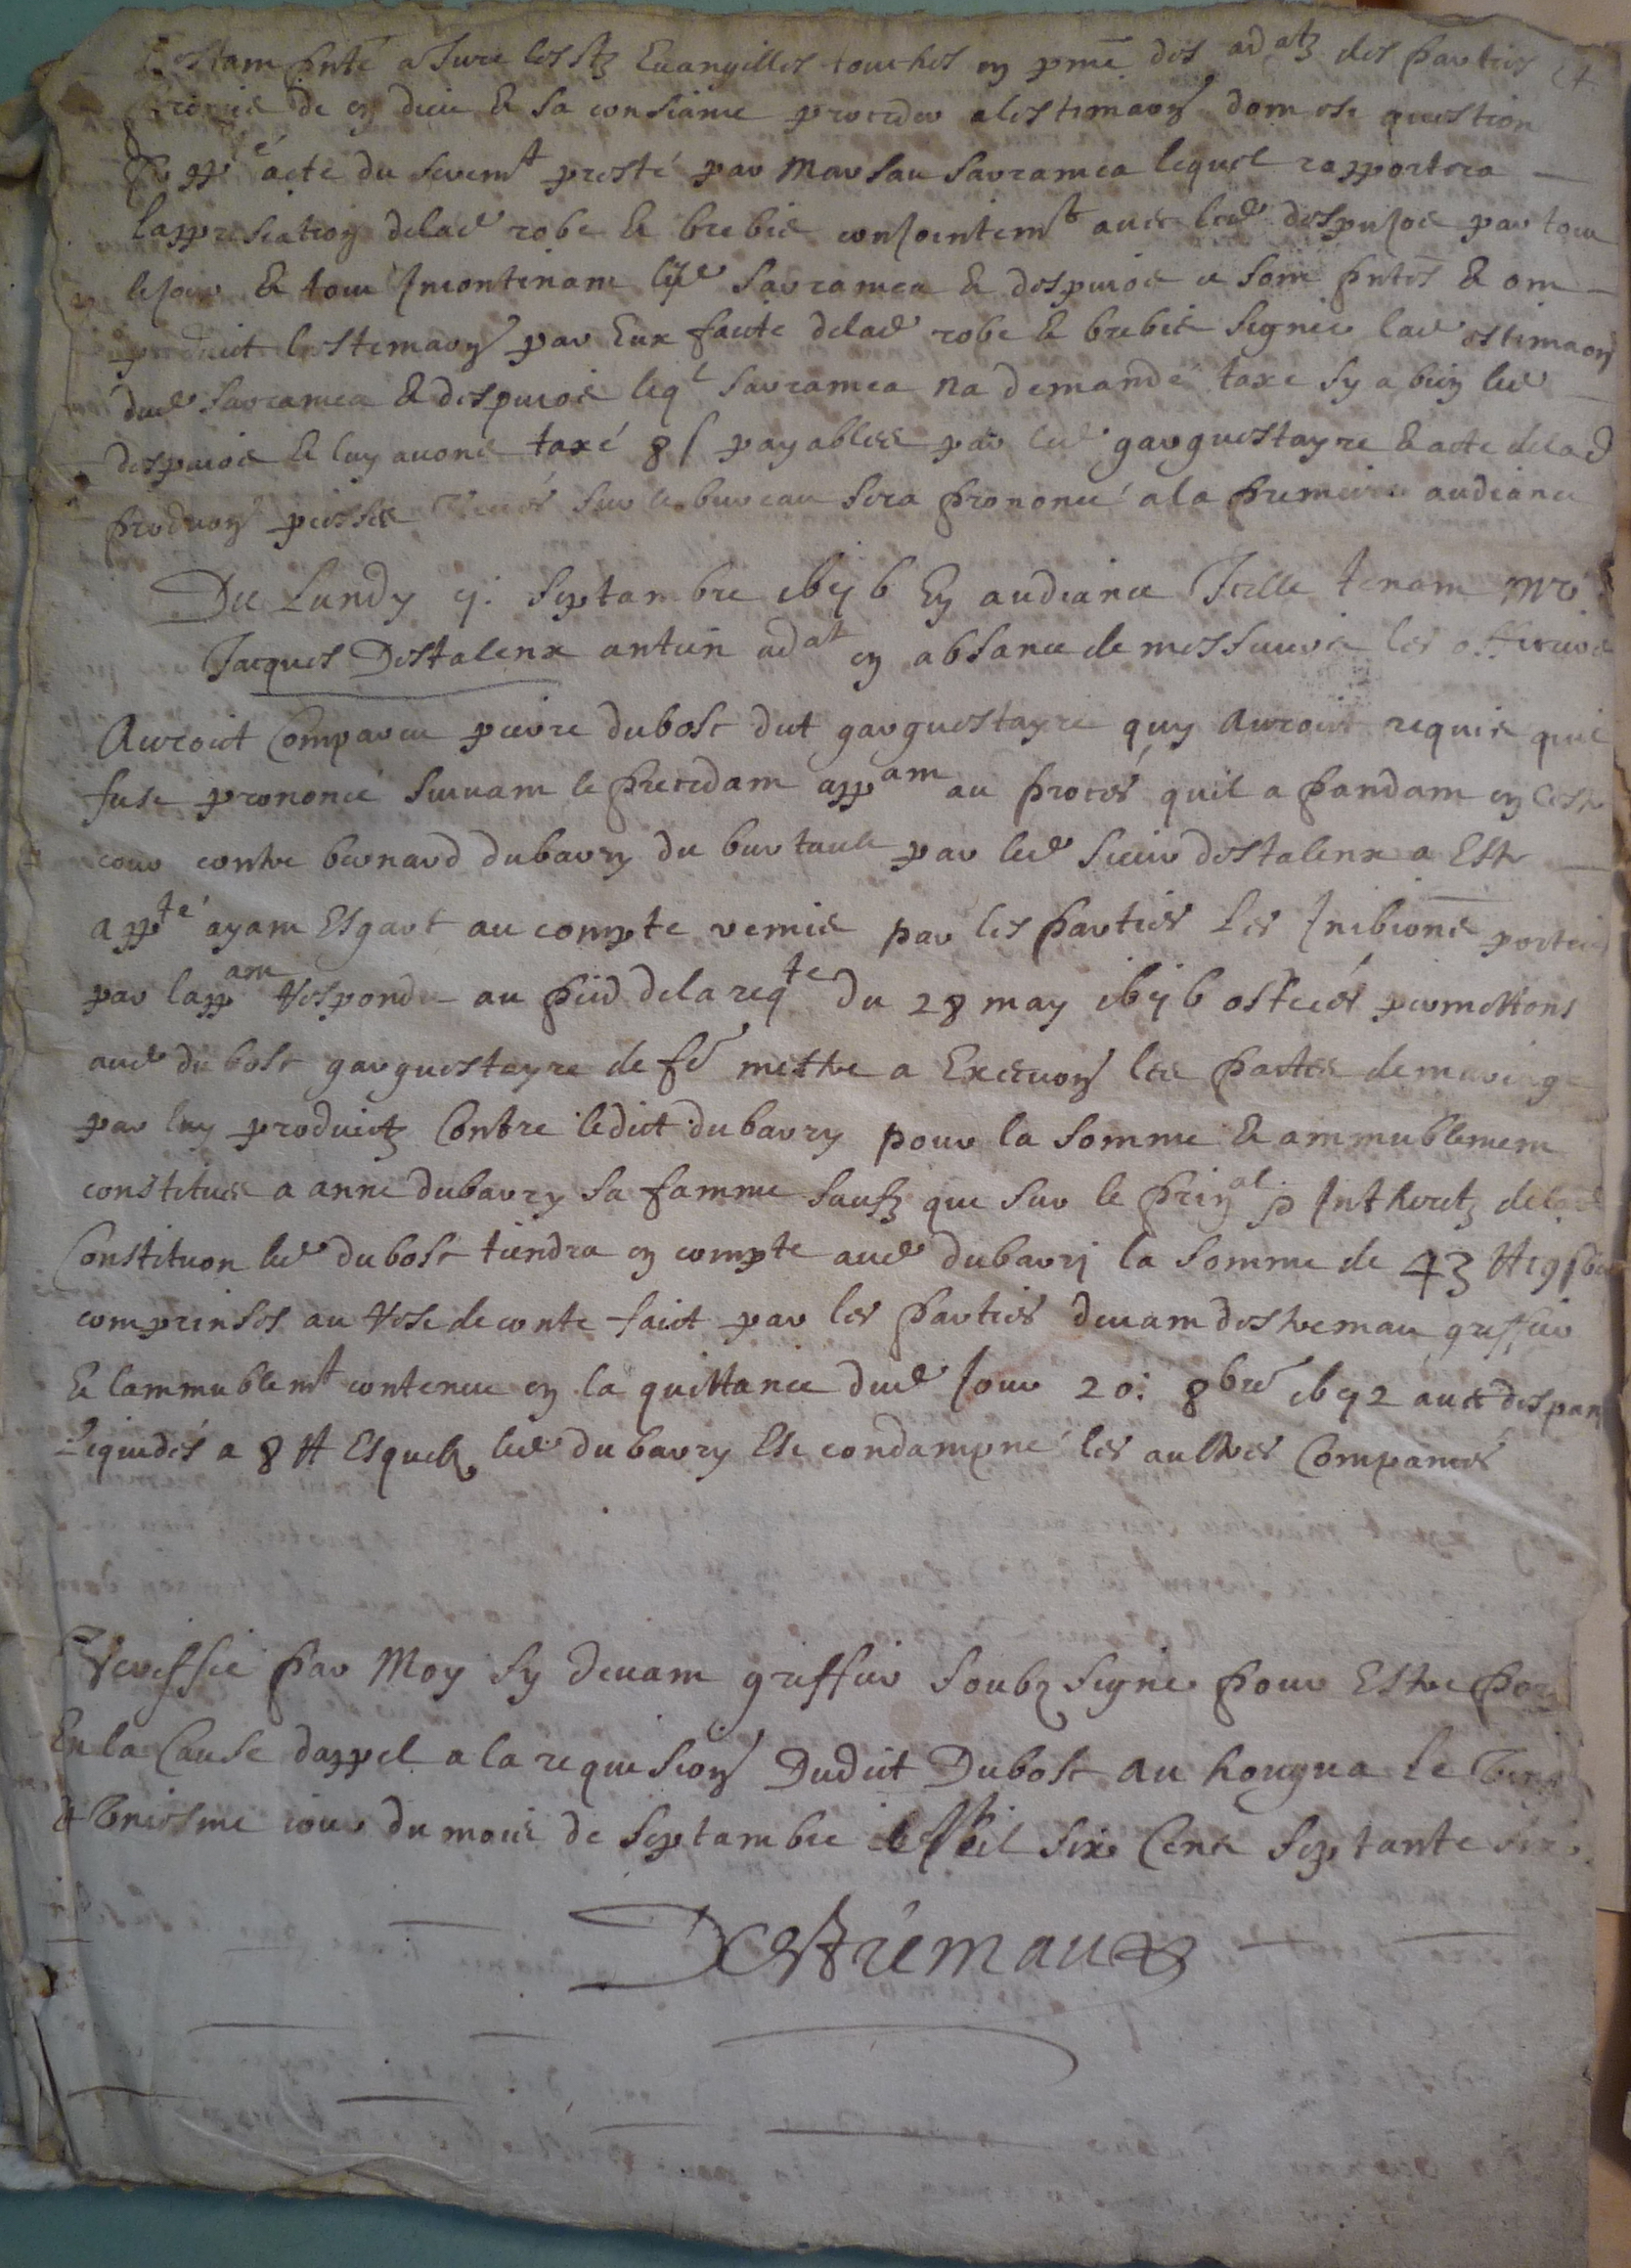 Estam pnte a Jure les stz Euangilles touches en pnce des adatz des parties et
promis de en dieu & sa consiance proceder a lestimaon dom est question
app.é acte du seremt presté par Marsau Sarramea lequel rapportera
lappresiation delad robe & brebis conjointemt auec led despujos par tou
lejour & tou Incontinam lesd Sarramea & despuios se som pntes & om
produit lestimaon par Eux faite delad robe & brebis signée lad estimaon
dud Sarramea & despuios leql Sarramea na demandé taxe sy a bien led
despuios & luy auons taxé 8 s payables par led garguestayre & acte delad
produon piesses sur le bureau sera prononcé a la premiere audiance
Du Lundy septambre en audiance Icelle tenam Mre
Jacques Destalenx antien adat en absance de messieurs les officiers
Auroict Comparu pierre dubosc dit garguestayre quy Auroict requis quil
fuse prononcé suiuam le precedam appam au proces quil a pandam en ceste
cour contre bernard dubarry du burtaule par led sieur destalenx a Este
appté ayam Esgart au compte remis par les parties les Inibions portees
par lappam respondu au pied dela reqte du 28 may ostées permettons
aud dubosc garguestayre de fe mettre a Execuon les pactes de mariage
par luy produictz Contre ledict dubarry pour la somme & ammublemem
constitues a anne dubarry sa famme saufz que sur le prinal Inthretz delad
Constituon led dubosc tiendra en compte aud dubarry la somme de 43 tt
comprinses au de conte faict par les parties deuam destremau greffier
& lammublemt contenue en la quittance dud Jour 20: 8bre auec despans
liquides a 8 tt Esquelz led dubarry Est condampné les aultres Compances
Veriffié par Moy sy deuam greffier soubzsigné pour Estre porté
En la Cause dappel a la requision Dudict Dubosc au hougua le vingt
& vniesme iour du mois de septambre Mil six Cens septante six
Destremaux